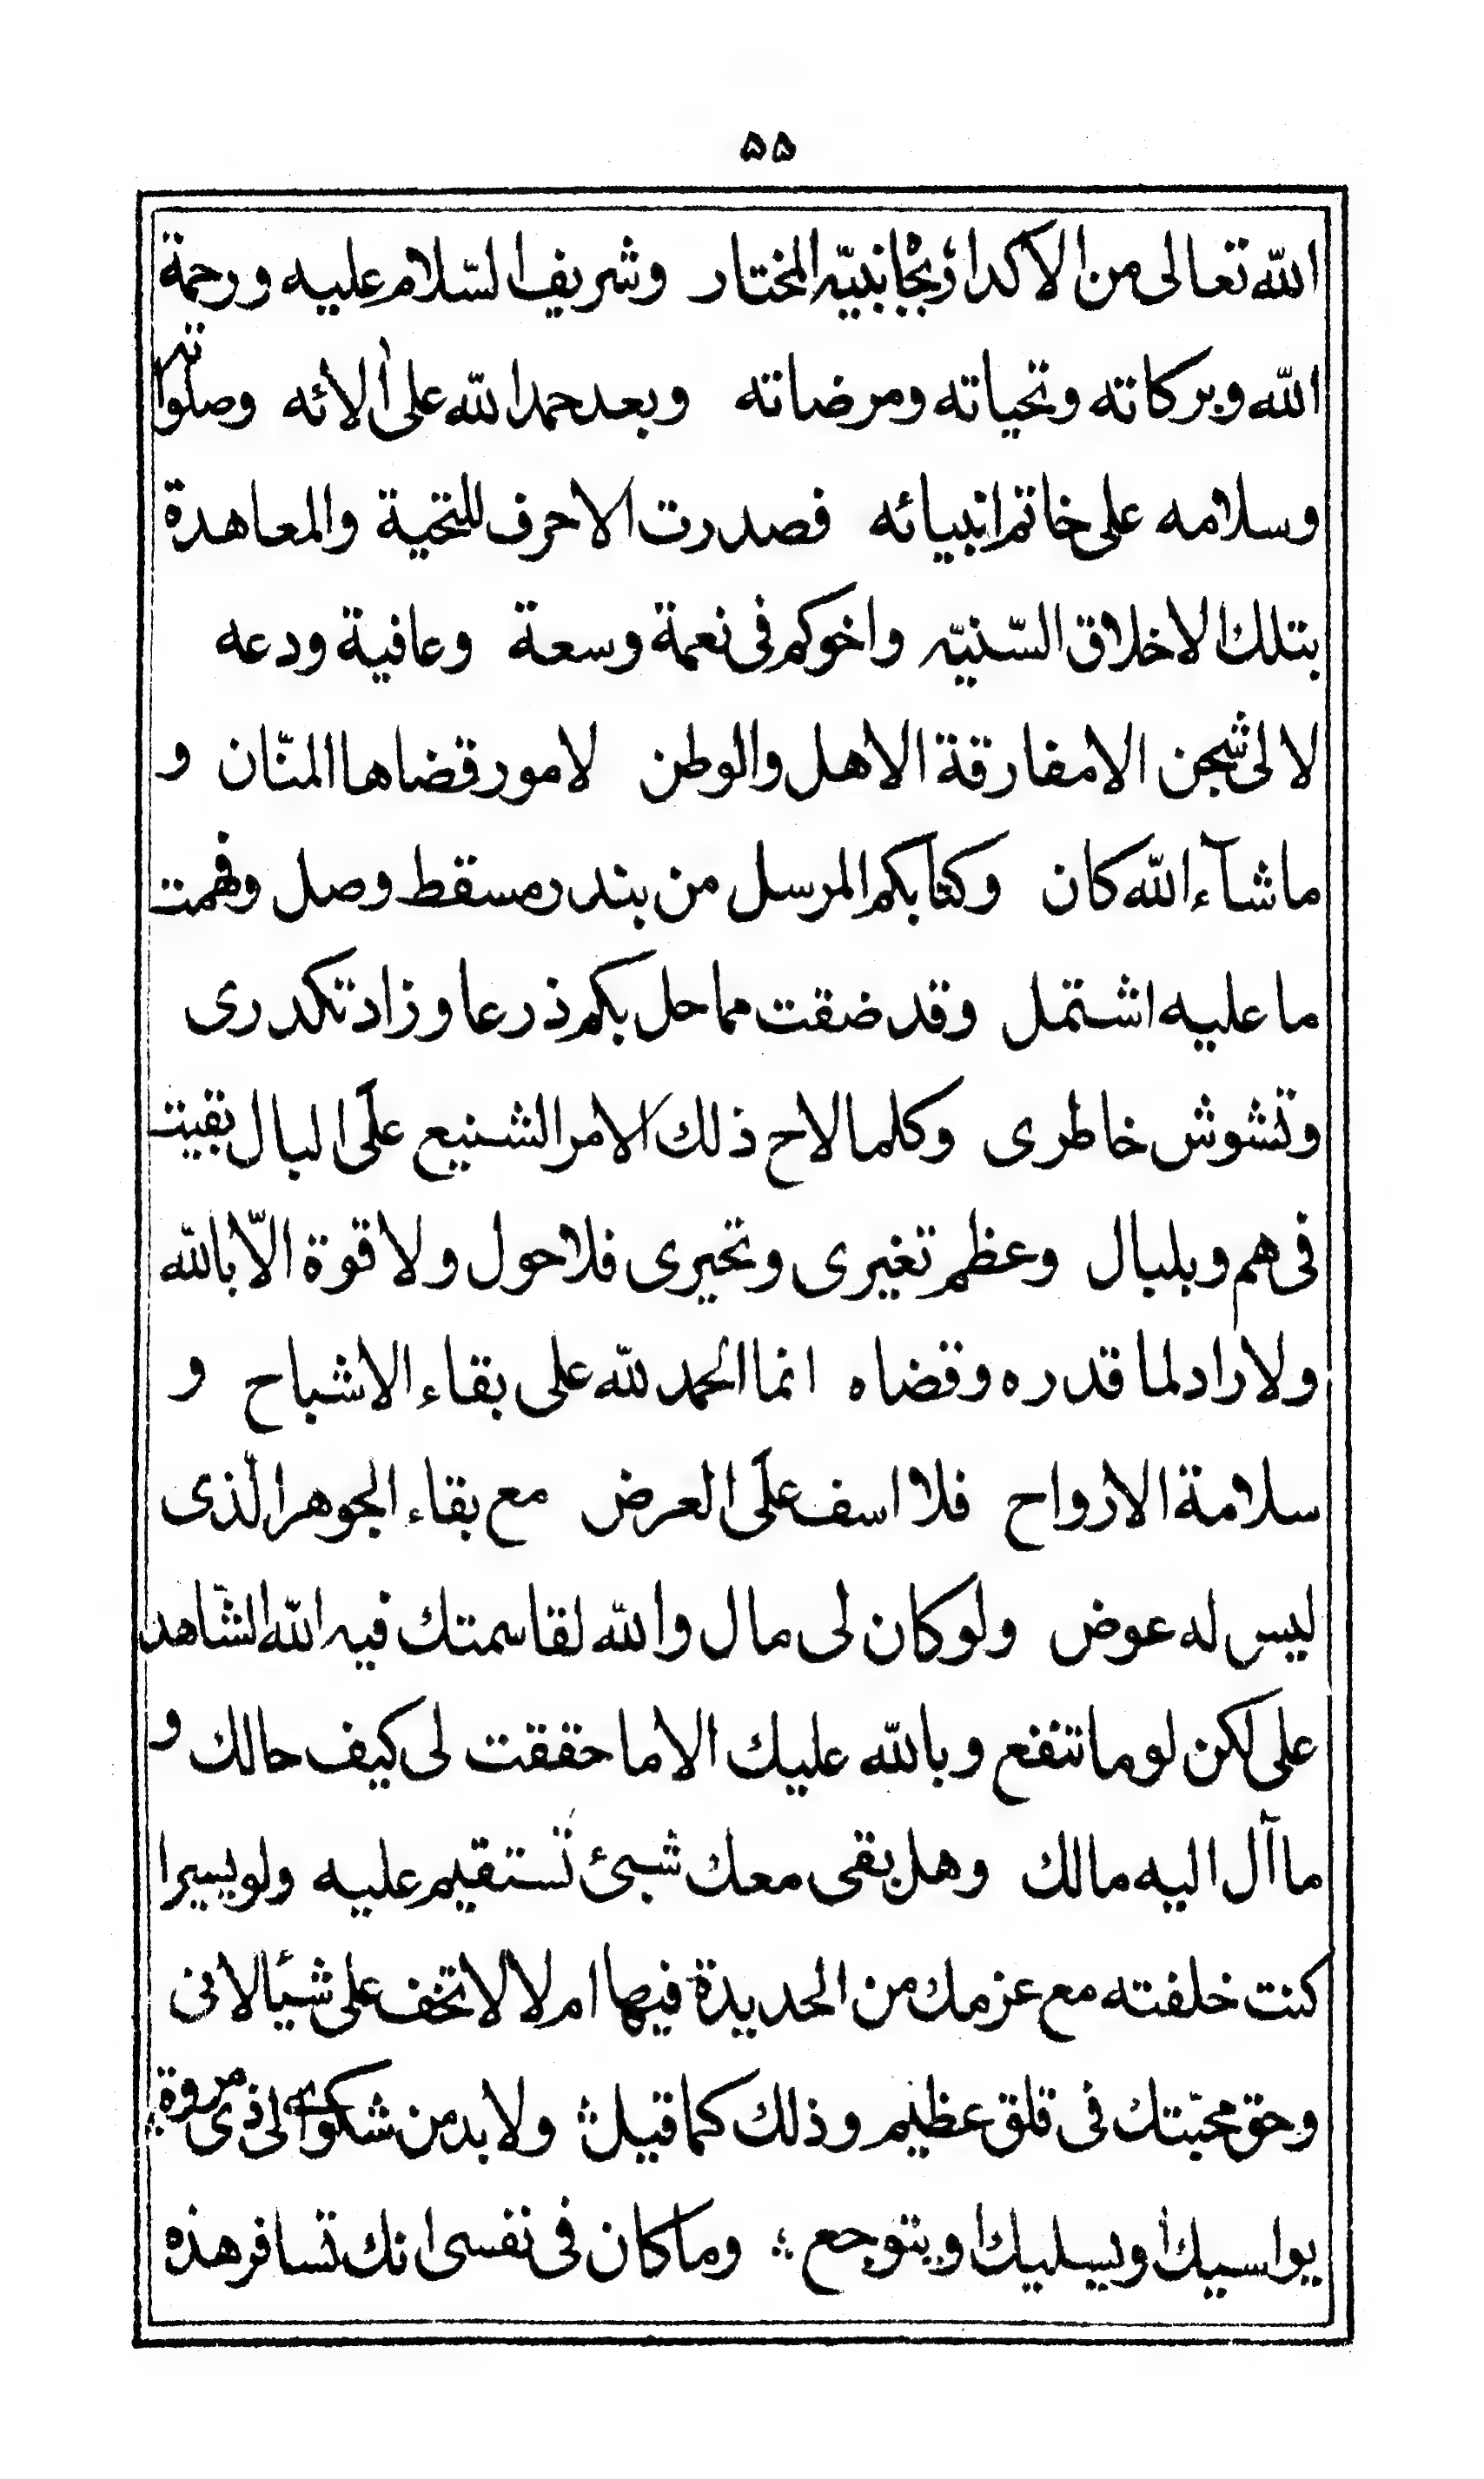 ۵۵
الله تعالى من الاكدار بجاه نبيّه المختار وشريف السّلام عليه ورحمة
الله وبركاته وتحياته ومرضاته وبعد حمد الله على ألائه وصلواته
وسلامه على خاتم انبيائه فصدرت الاحرف للتحية والمعاهدة
بتلك الاخلاق السّنيّه واخوكم فى نعمة وسعة وعافية ودعه
لا لى شجن الا مفارقة الاهل والوطن لامور قضاها المنّان و
ما شآء الله كان وكتابكم المرسل من بندر مسقط وصل وفهمت
ما عليه اشتمل وقد ضقت مما حل بكم ذرعا وزاد تكدرى
وتشوش خاطرى وكلما لاح ذلك الامر الشنيع على البال بقيت
فى هم وبلبال وعظم تغيرى وتحيرى فلا حول ولا قوة الّا بالله
ولا راد لما قدره وقضاه انما الحمد لله على بقاء الاشباح و
سلامة الارواح فلا اسف على العرض مع بقاء الجوهر الّذى
ليس له عوض ولو كان لى مال والله لقاسمتك فيه الله الشاهد
على لكن لو ما تنفع وبالله عليك الا ما حققت لى كيف حالك و
ما آل اليه مالك وهل بقى معك شيئ تستقيم عليه ولو يسيرا
كنت خلفته مع عزمك من الحديدة فيها ام لا لا تخف على شيأ لانى
وحق محبّتك فى قلق عظيم وذلك كما قيل ؛ ولا بد من شكوى الى ذى مروة ؛
يواسيك او يسليك او يتوجع ؛ وما كان فى نفسى انك تسافر هذه